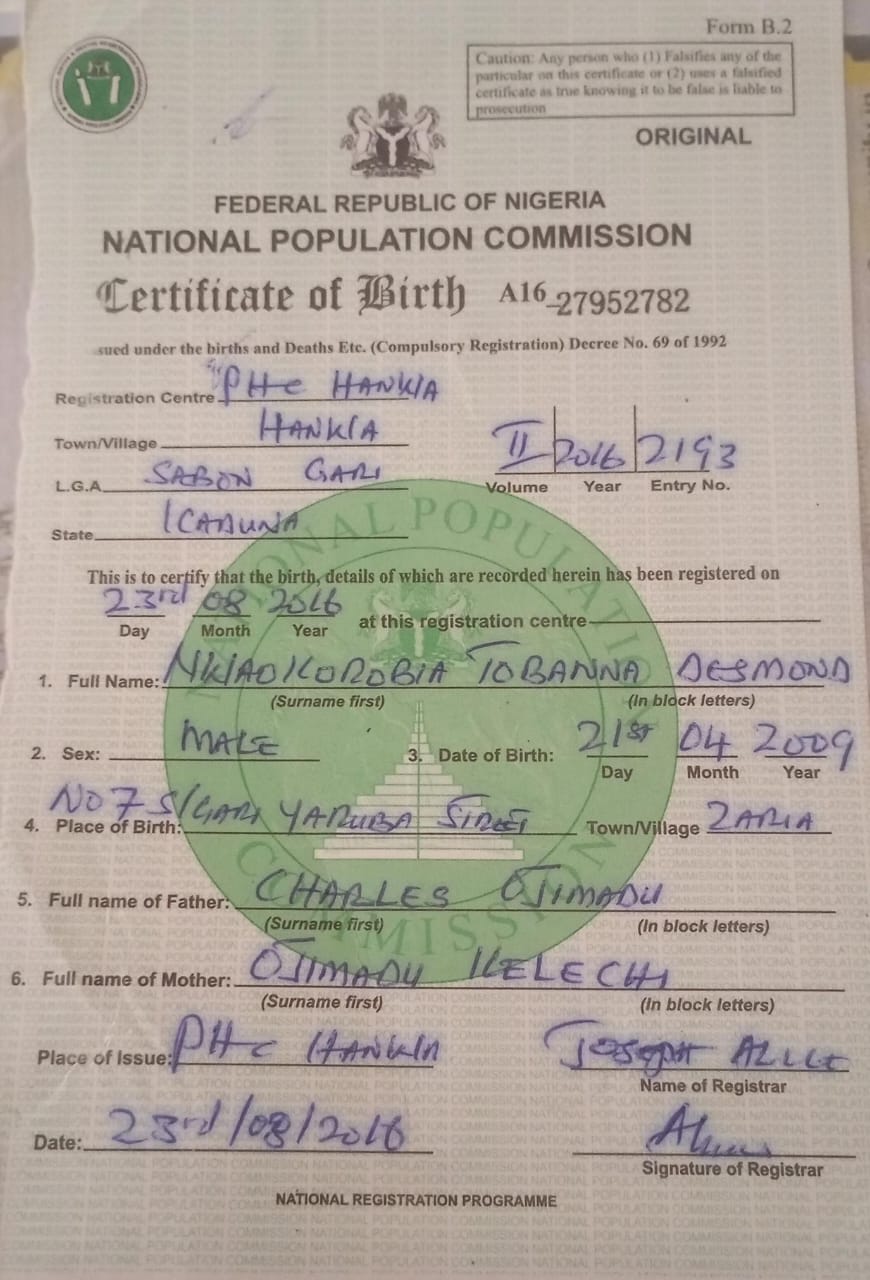 Form B.2
Caution: Any person who (1) Falsifies any of the
particular on this certificate or (2) uses a falsified
certificate as true knowing it to be false is liable to
prosecution
ORIGINAL
FEDERAL REPUBLIC OF NIGERIA
NATIONAL POPULATION COMMISSION
Certificate of Birth A16 27952782
sued under the births and Deaths Etc. (Compulsory Registration) Decree No. 69 of 1992
Registration Centre PHC HANKIA
Town/Village HANKIA
L.G.A SABON GARI
II 2016 2193
Volume Year Entry No.
State KADUNA
This is to certify that the birth, details of which are recorded herein has been registered on
23rd 08 2016 at this registration centre
Day Month Year
1. Full Name: TOBANNA DESMOND
(Surname first) (In block letters)
2. Sex: MALE 3. Date of Birth: 21st 04 2009
Day Month Year
4. Place of Birth: NO 7 S/GARI YARUBA STREET Town/Village ZARIA
5. Full name of Father: CHARLES OJIMADU
(Surname first) (In block letters)
6. Full name of Mother: OJIMADU KELECHI
(Surname first) (In block letters)
Place of Issue: PHC HANKIA JOSEPH
Name of Registrar
Date: 23rd/08/2016
Signature of Registrar
NATIONAL REGISTRATION PROGRAMME